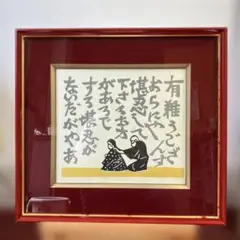 有難うござ
おらにやんす
堪忍して
下さるお方
があろで
する堪忍が
ないだがやあ